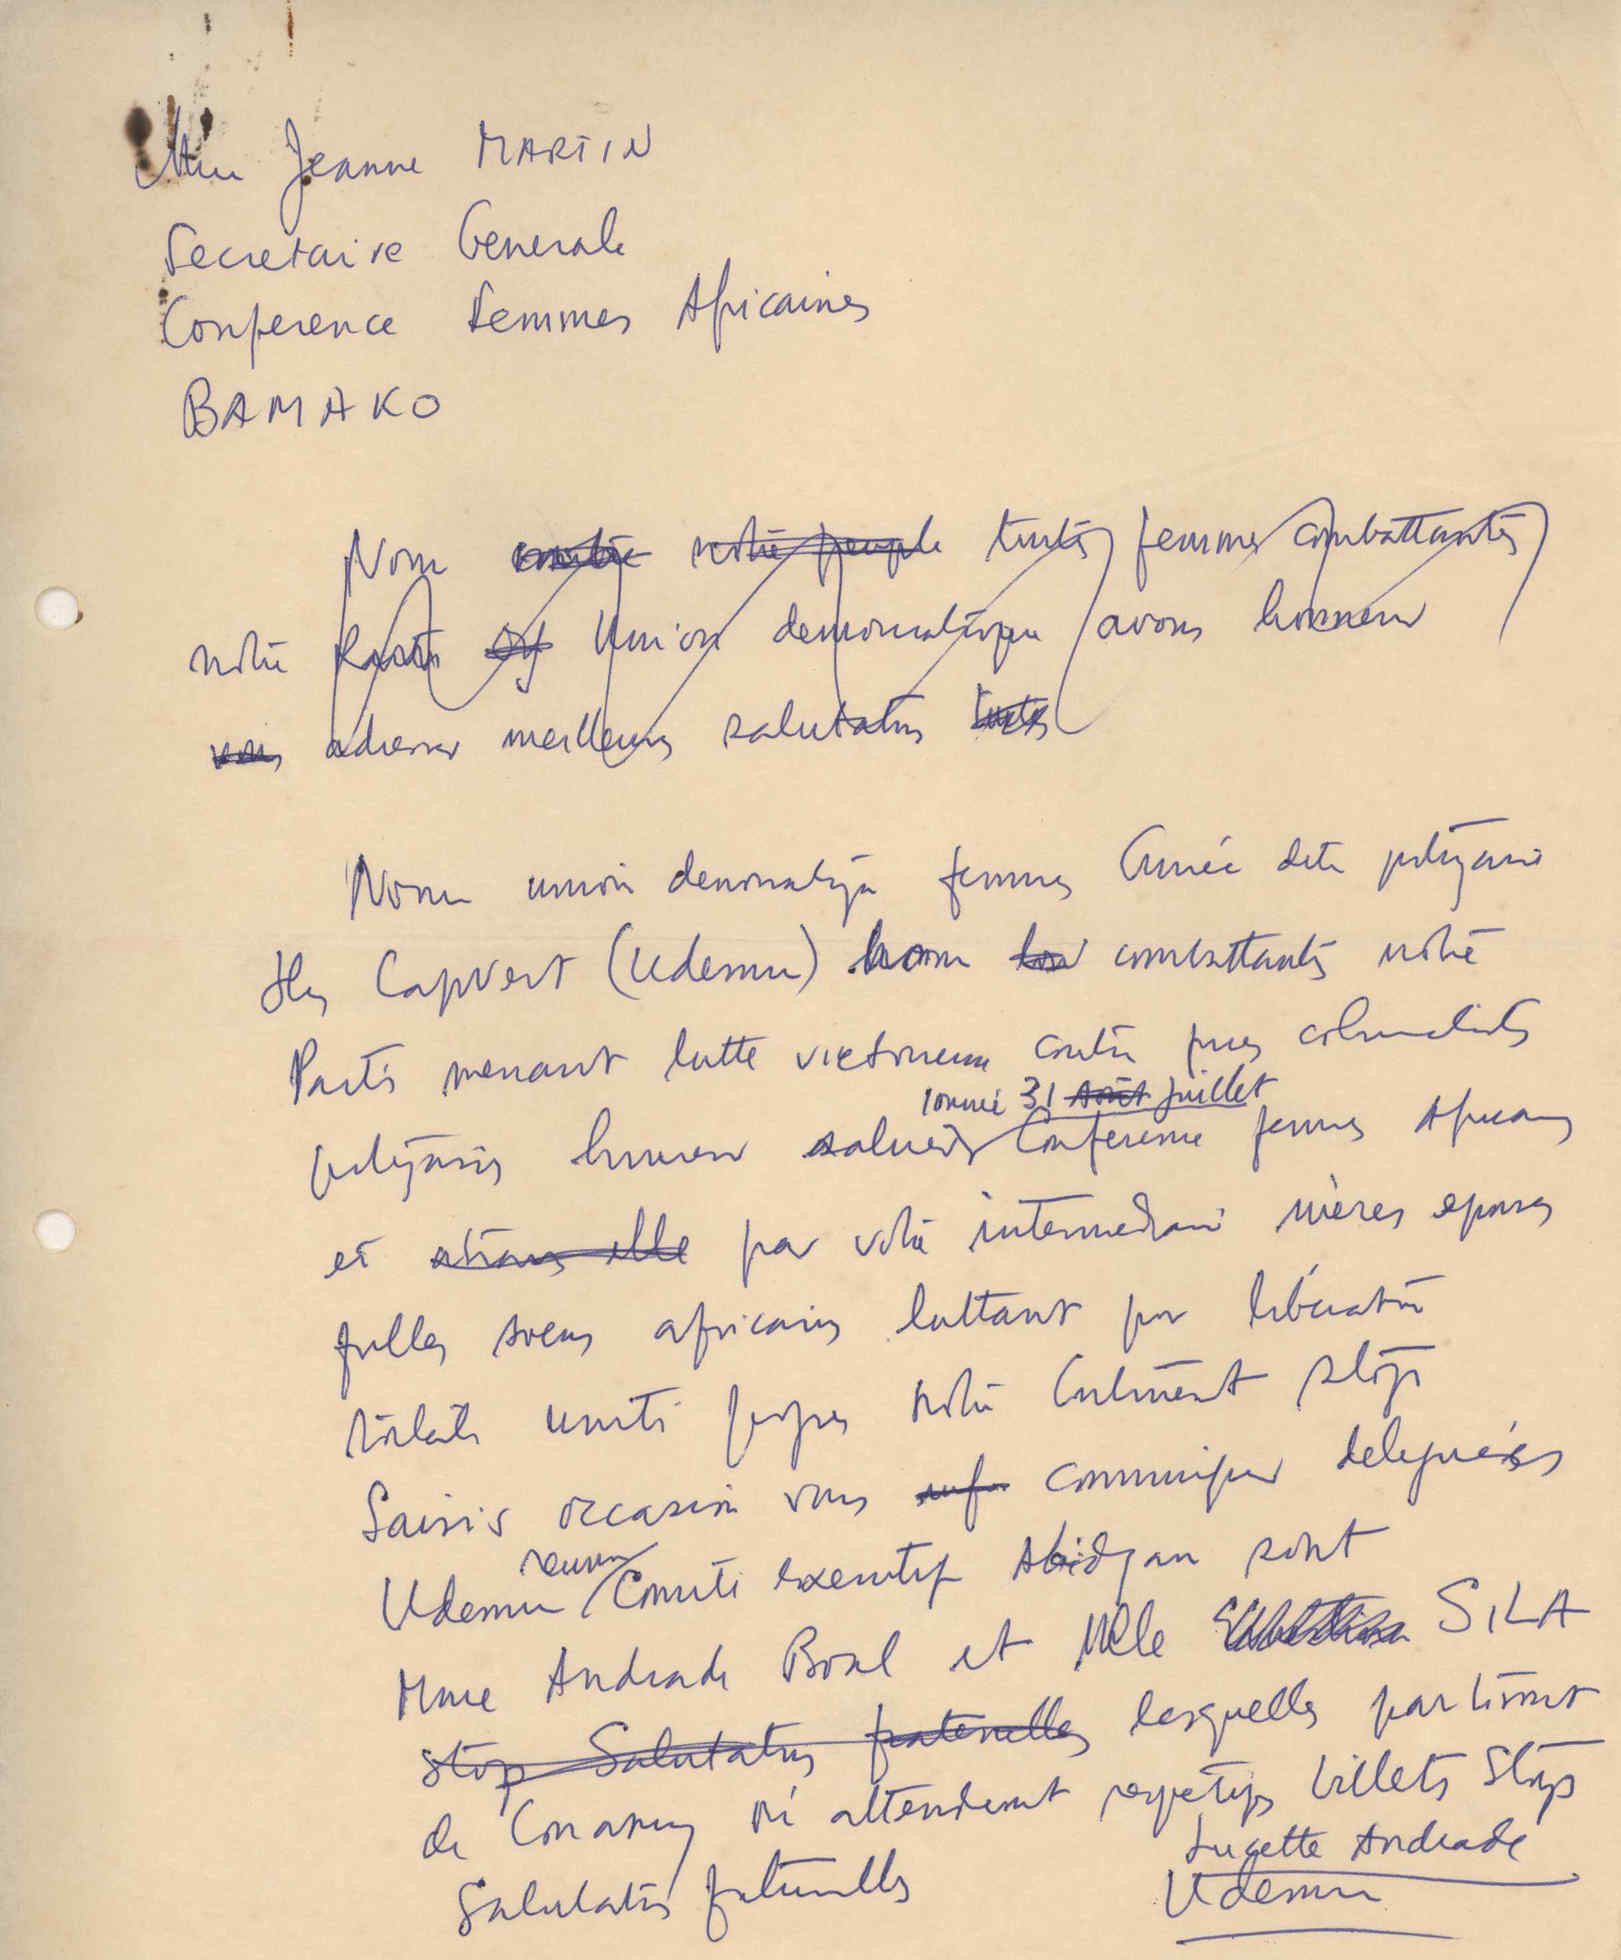 Mme Jeanne MARTIN
Secretaire Generale
Conference Femmes Africaines
BAMAKO
Nom contre notre peuple toutes femmes combattantes
notre Parti Union democratique avons honneur
vous adresser meilleures salutations toutes
Nom union democratique femmes Guinée dite portugaise
Iles CapVert (Udemu) combattants notre
Parti menant lutte victorieuse contre colonialistes
journée 31 Août juillet
portugais honneur saluer Conference femmes Africaines
et par votre intermediaire mères epouses
filles soeurs africaines luttant pour libération
totale unité peuples notre Continent stop
Saisis occasion vous communiquer deleguées
reunion
Udemu Comité executif Abidjan sont
Mme Andrade Boal et Melle SILA
stop Salutations fraternelles lesquelles partiront
de Conakry où attendront respectifs billets Stop
Lucette Andrade
Salutations fraternelles
Udemu